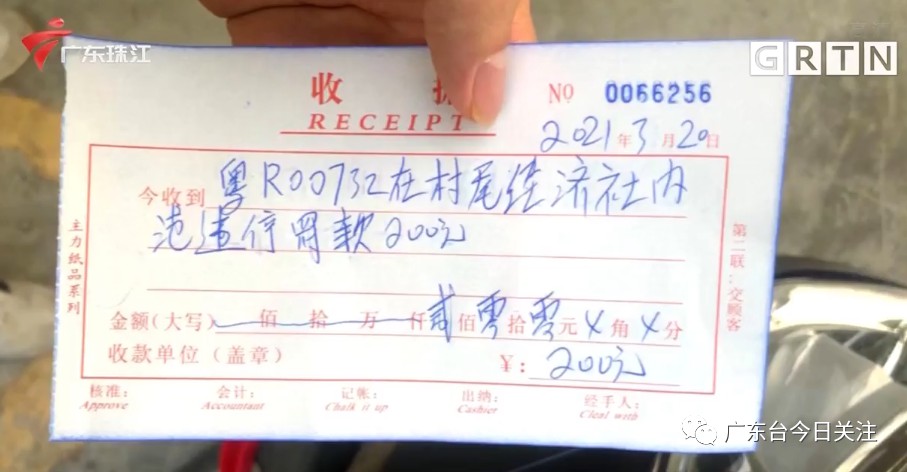 广东珠江
GRTN
收 据
NO 0066256
RECEIPT
2021年3月20日
今收到 粤R00732在村尾经济社内
违停罚款200元
金额(大写) 佰 拾 万 仟 贰 佰 零 拾 零 元 角 分
收款单位(盖章) ¥: 200元
核准: 会计: 记帐: 出纳: 经手人:
Approve Accountant Chalk it up Cashier Cleal with
主力纸品系列
第二联:交顾客
广东台今日关注